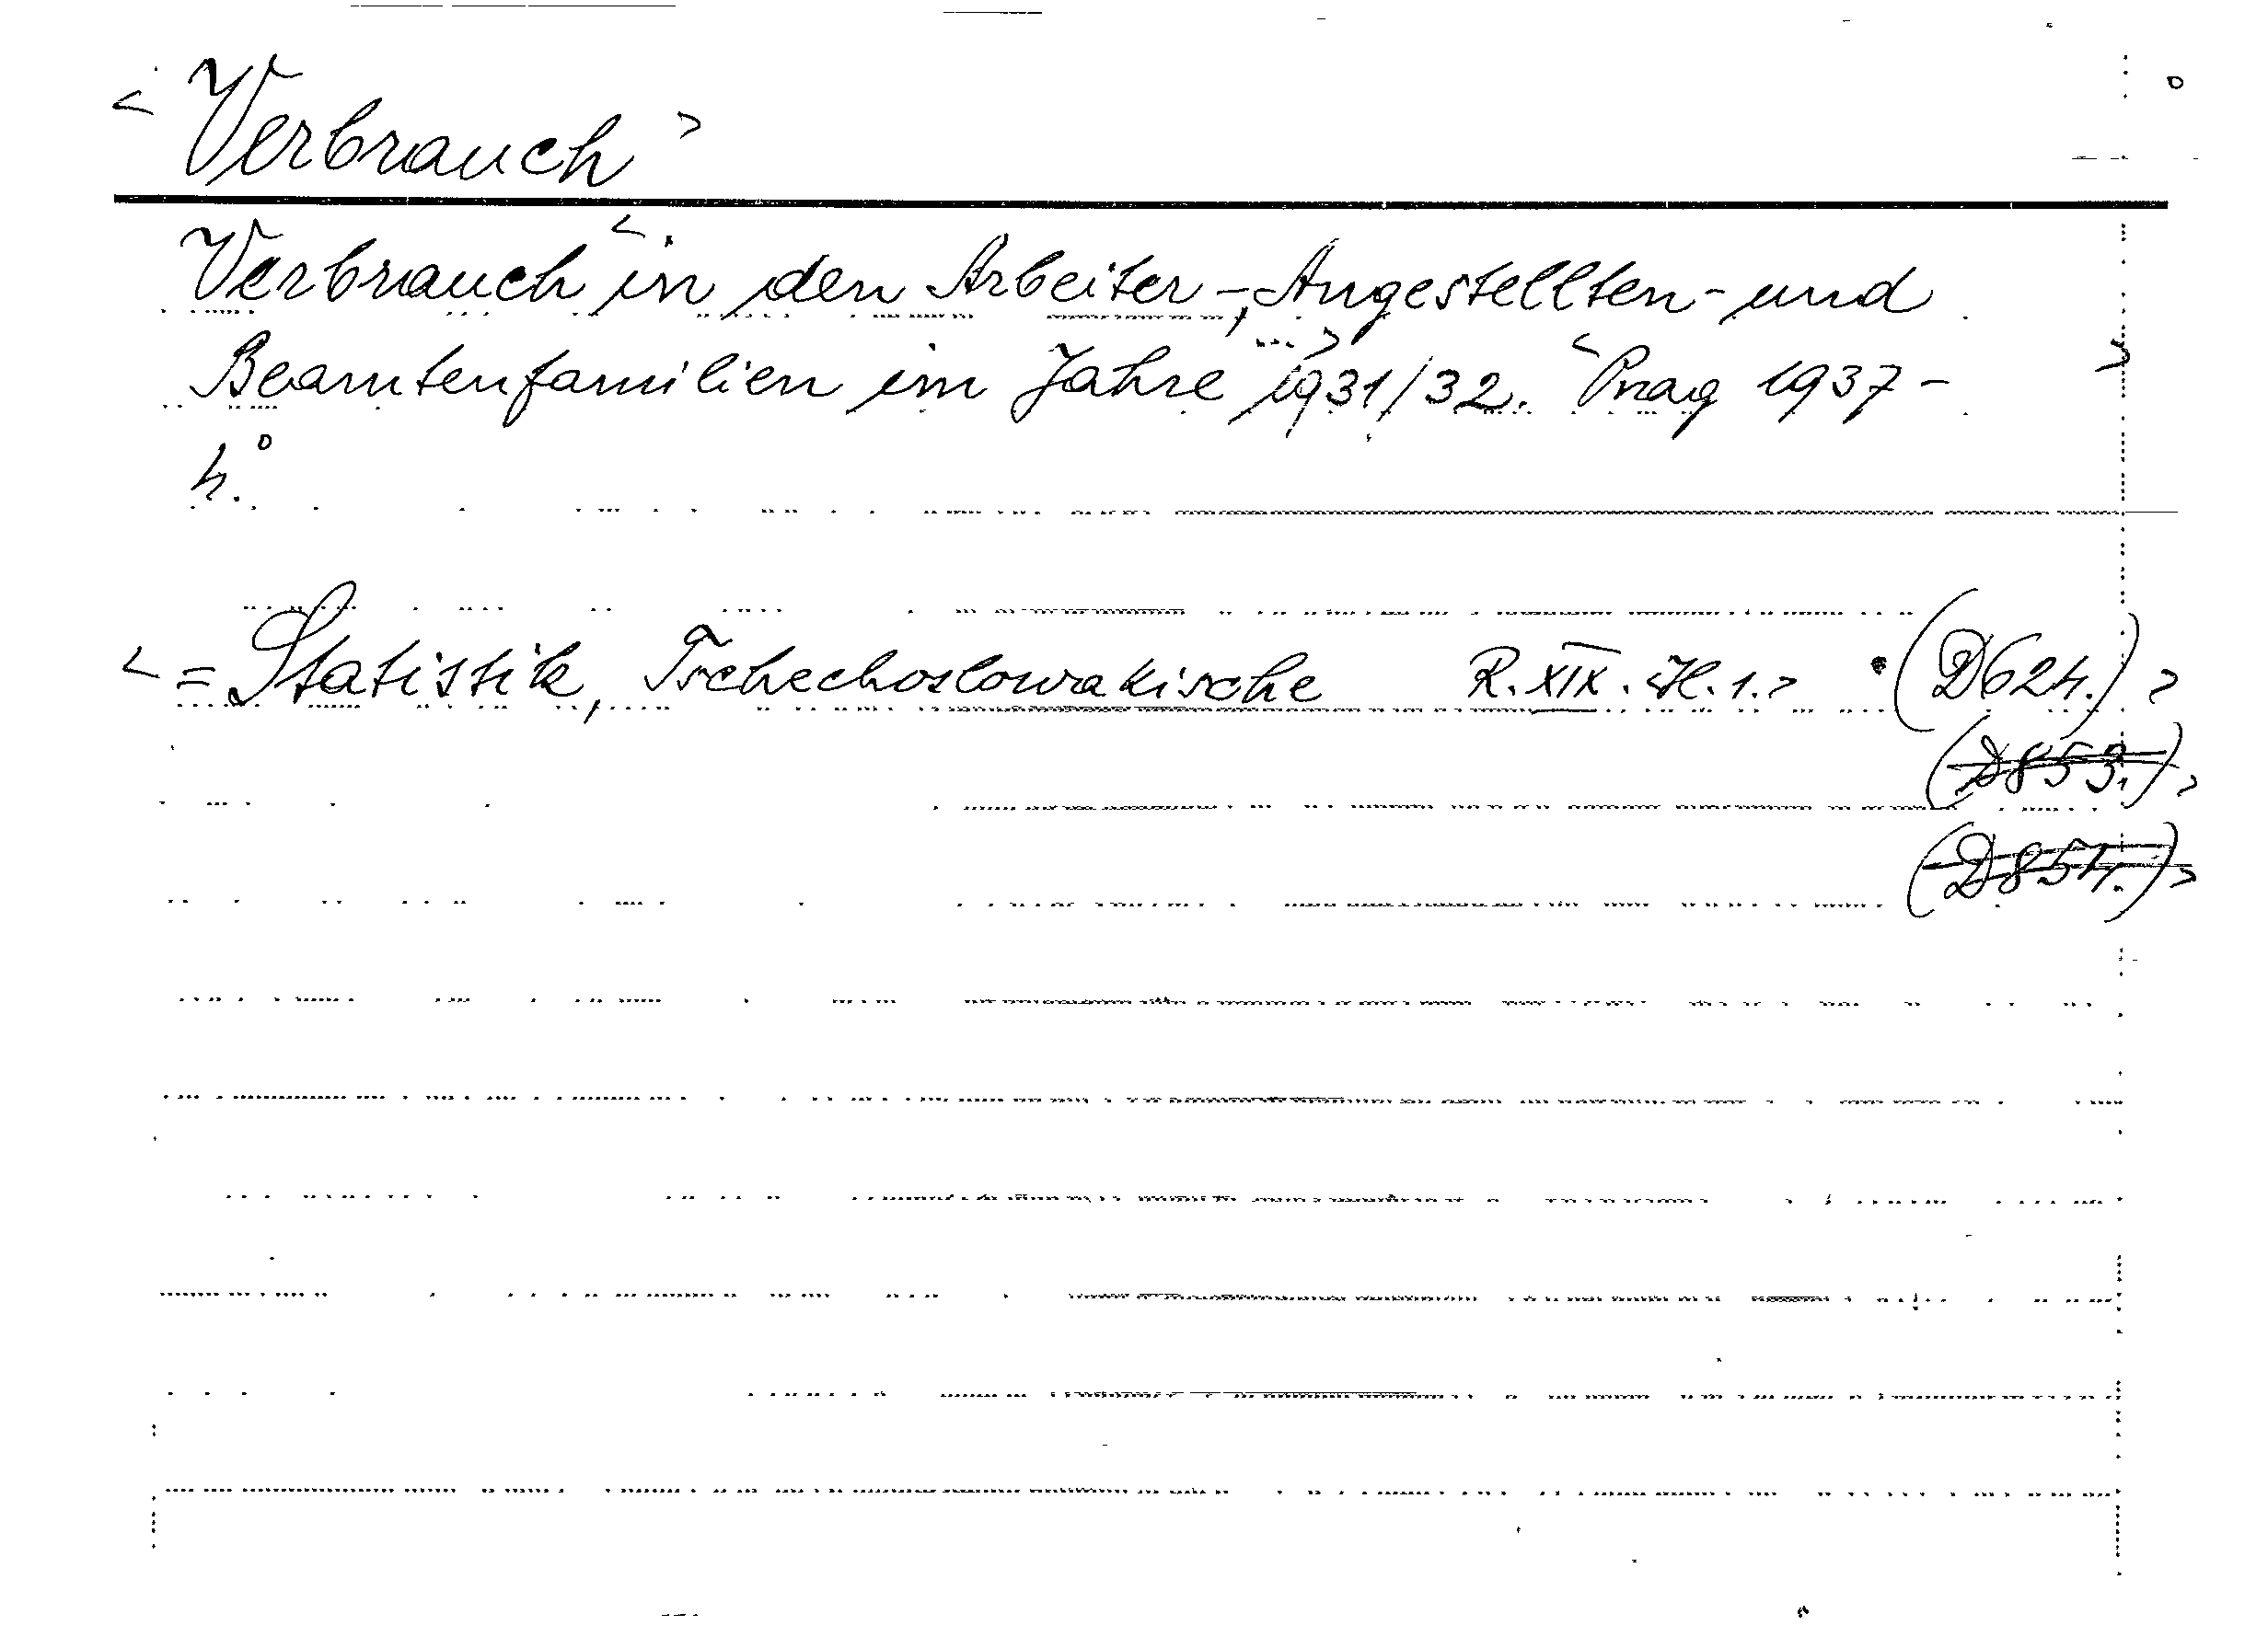 < Verbrauch >
Verbrauch < in den Arbeiter-, Angestellten- und
Beamtenfamilien im Jahre > 1931/32. < Prag 1937- >
4.°
< = Statistik, Tschechoslowakische R. XIX. H. 1. > • (D624.) >
(D853.) >
(D854.) >